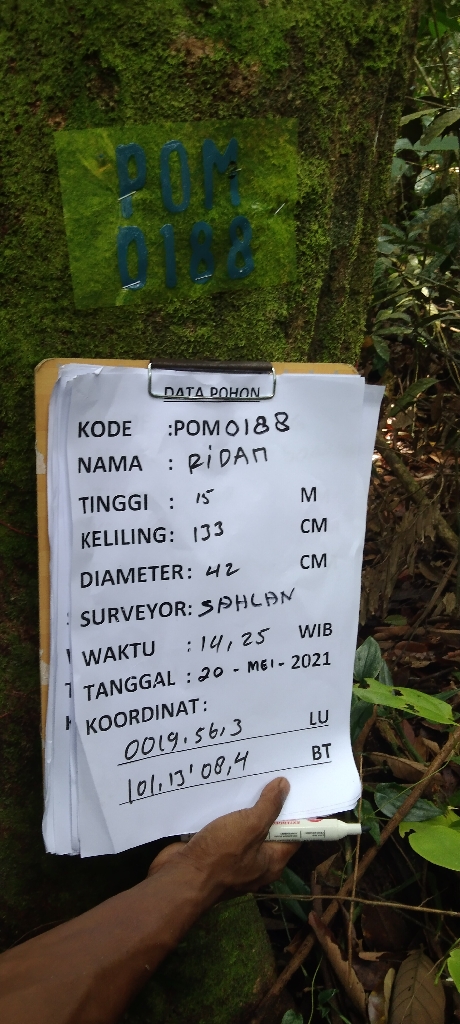 POM
0188
DATA POHON
KODE :POM0188
NAMA : RIDAM
TINGGI : 15 M
KELILING: 133 CM
DIAMETER: 42 CM
SURVEYOR: SAHLAN
WAKTU : 14,25 WIB
TANGGAL : 20 - MEI - 2021
KOORDINAT:
0019.56,3 LU
101,13'08,4 BT